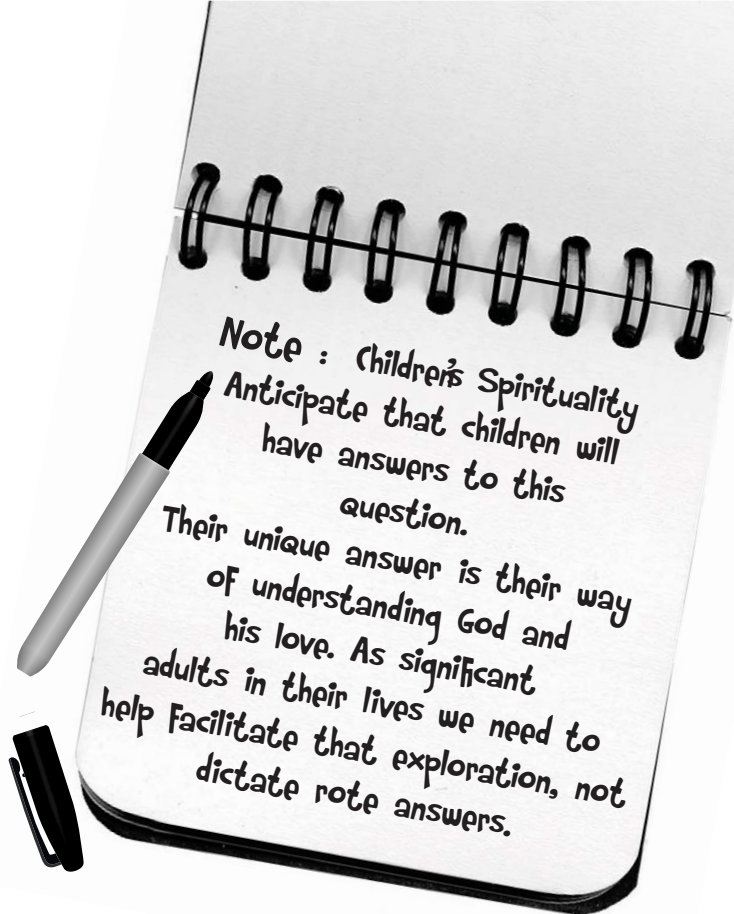 Note : Children's Spirituality
Anticipate that children will
have answers to this
question.
Their unique answer is their way
of understanding God and
his love. As significant
adults in their lives we need to
help facilitate that exploration, not
dictate rote answers.